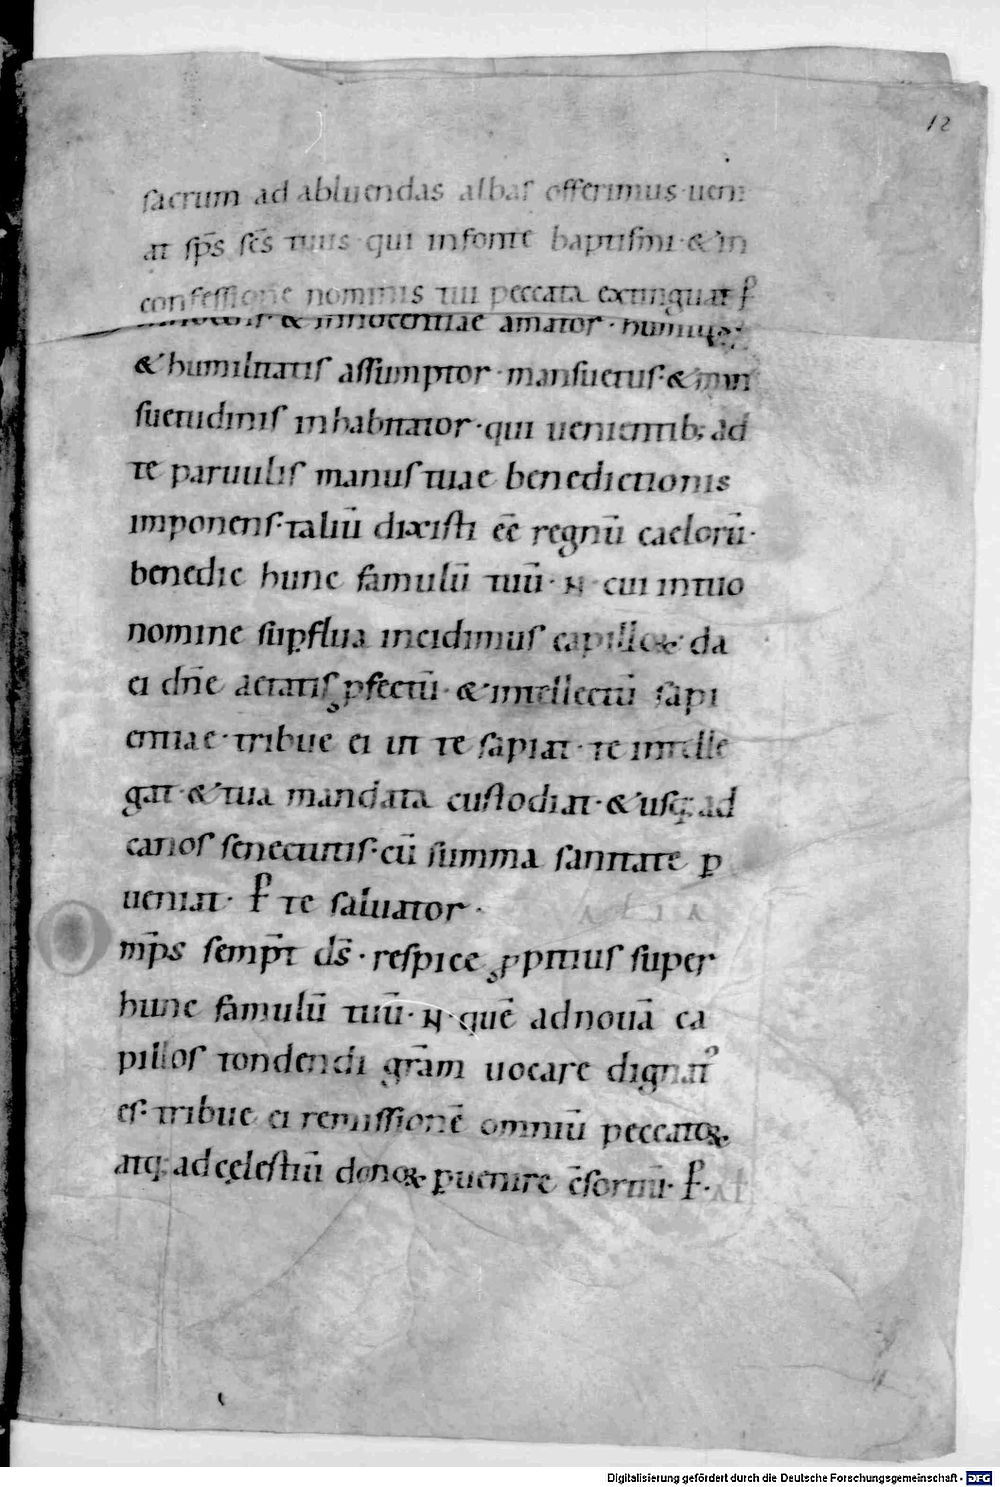 12
sacrum ad abluendas albas offerimus· ueni
at sp̄s sc̄s tuus· qui in fonte baptismi· & in
confessione nominis tui peccata extinguat p̄
& innocentiae amator·
& humilitatis assumptor· mansuetus· & man
suetudinis inhabitator· qui uenientib; ad
te paruulis manus tuae benedictionis
imponens· taliū dixisti eē regnū caelorū·
benedic hunc famulū tuū· N· cui in tuo
nomine sup̄flua incidimus capilloꝝ· da
ei dn̄e aetatis ꝓfectū· & intellectū sapi
entiae· tribue ei ut te sapiat· te intelle
gat· & tua mandata custodiat· & usq; ad
canos senectutis· cū summa sanitate ꝑ
ueniat· p̄ te saluator·
Omp̄s semp̄t ds̄· respice ꝓpitius super
hunc famulū tuū· N· quē ad nouā ca
pillos tondendi gr̄am uocare dignatꝰ
es· tribue ei remissionē omniū peccatoꝝ,
atq; ad cęlestiū donoꝝ ꝑuenire c̄sortiū· p̄·
Digitalisierung gefördert durch die Deutsche Forschungsgemeinschaft - DFG